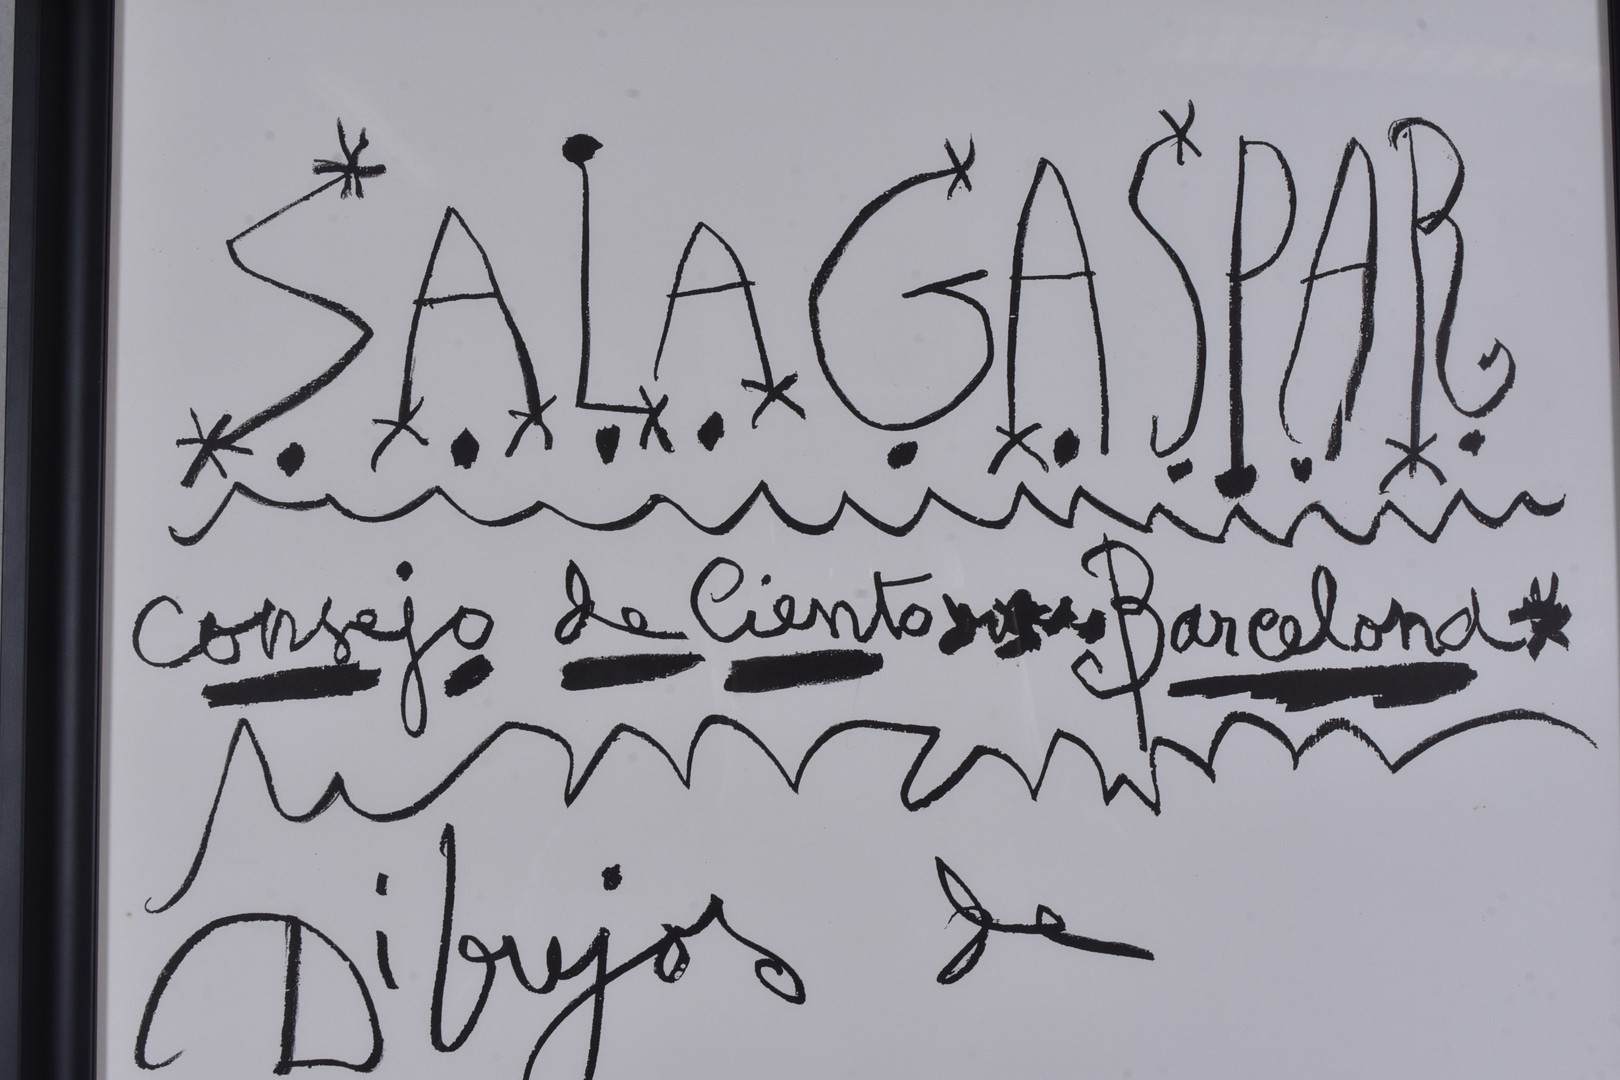 SALA GASPAR
Consejo de Ciento Barcelona
Dibujos de